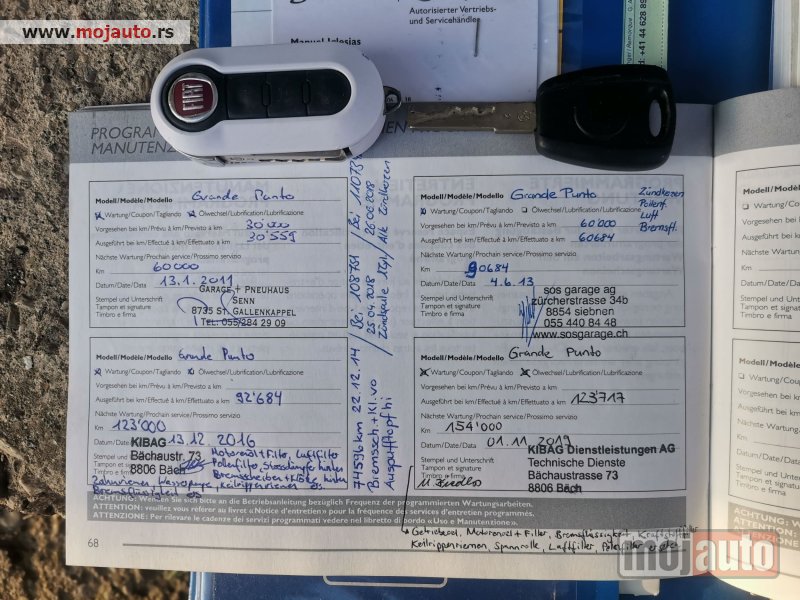 www.mojauto.rs
Autorisierter Vertriebs-
und Servicehändler
Manuel Iglesias
+41 44 628 89
FIAT
PROGRAM
MANUTENZ
Modell/Modèle/Modello Grande Punto
Wartung/Coupon/Tagliando Ölwechsel/Lubrification/Lubrificazione
Vorgesehen bei km/Prévu à km/Previsto a km 30'000
Ausgeführt bei km/Effectué à km/Effettuato a km 30'559
Nächste Wartung/Prochain service/Prossimo servizio
Km 60000
Datum/Date/Data 13.1.2011
Stempel und Unterschrift
Tampon et signature
Timbro e firma
GARAGE + PNEUHAUS
SENN
8735 ST. GALLENKAPPEL
TEL. 055/284 29 09
Modell/Modèle/Modello Grande Punto
Wartung/Coupon/Tagliando Ölwechsel/Lubrification/Lubrificazione
Vorgesehen bei km/Prévu à km/Previsto a km 60'000
Ausgeführt bei km/Effectué à km/Effettuato a km 60684
Nächste Wartung/Prochain service/Prossimo servizio
Km 90684
Datum/Date/Data 4.6.13
Stempel und Unterschrift
Tampon et signature
Timbro e firma
sos garage ag
zürcherstrasse 34b
8854 siebnen
055 440 84 48
www.sosgarage.ch
Zündkerzen
Pollenf.
Luft
Bremsfl.
Bei 108761
25.04.2018
Zündspule 1Zyl
26.06.2018
Alle Zündkerzen
74596km 22.12.14
Bremssch.+Kl. vo
Auspufftopf hi
Modell/Modèle/Modello Grande Punto
Wartung/Coupon/Tagliando Ölwechsel/Lubrification/Lubrificazione
Vorgesehen bei km/Prévu à km/Previsto a km
Ausgeführt bei km/Effectué à km/Effettuato a km 92'684
Nächste Wartung/Prochain service/Prossimo servizio
Km 123'000
Datum/Date/Data 13.12.2016
Stempel und
Tampon et
Timbro e firma
KIBAG
Bächaustr. 73
8806 Bäch
Motorenöl+Filter, Luftfilter
Pollenfilter, Stossdämpfer hinten
Bremsscheiben+Klötze hinten
Bremsflüssigkeit
Modell/Modèle/Modello Grande Punto
Wartung/Coupon/Tagliando Ölwechsel/Lubrification/Lubrificazione
Vorgesehen bei km/Prévu à km/Previsto a km
Ausgeführt bei km/Effectué à km/Effettuato a km 123'717
Nächste Wartung/Prochain service/Prossimo servizio
Km 154'000
Datum/Date/Data 01.11.2019
Stempel und Unterschrift
Tampon et signature
Timbro e firma
KIBAG Dienstleistungen AG
Technische Dienste
Bächaustrasse 73
8806 Bäch
ACHTUNG: Wenden Sie sich bitte an die Betriebsanleitung bezüglich Frequenz der programmierten Wartungsarbeiten.
ATTENTION: veuillez vous référer au livret «Notice d'entretien» pour la fréquence des services d'entretien programmés.
ATTENZIONE: Per rilevare le cadenze dei servizi programmati vedere nel libretto di bordo «Uso e Manutenzione».
Getriebeöl, Motorenöl+Filter, Bremsflüssigkeit, Kraftstofffilter
Keilrippenriemen, Spannrolle, Luftfilter, Pollenfilter ersetzt
68
mojauto
Modell/Modèle/Mo
Wartung/Coupon
Vorgesehen bei km
Ausgeführt bei km/
Nächste Wartung/P
Km
Datum/Date/Data
Stempel und Unter
Tampon et signatu
Timbro e firma
Modell/Modèle/
Wartung/Coup
Vorgesehen bei
Ausgeführt bei k
Nächste Wartun
Km
Datum/Date/Da
Stempel und Un
Tampon et sign
Timbro e firma
ACHTUNG: W
ATTENTION: